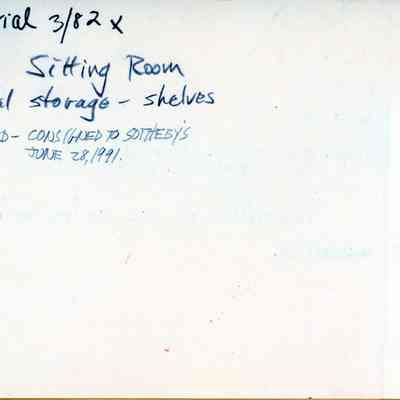 rial 3/82 x
Sitting Room
al storage - shelves
D- CONSIGNED TO SOTHEBY'S
JUNE 28, 1991.